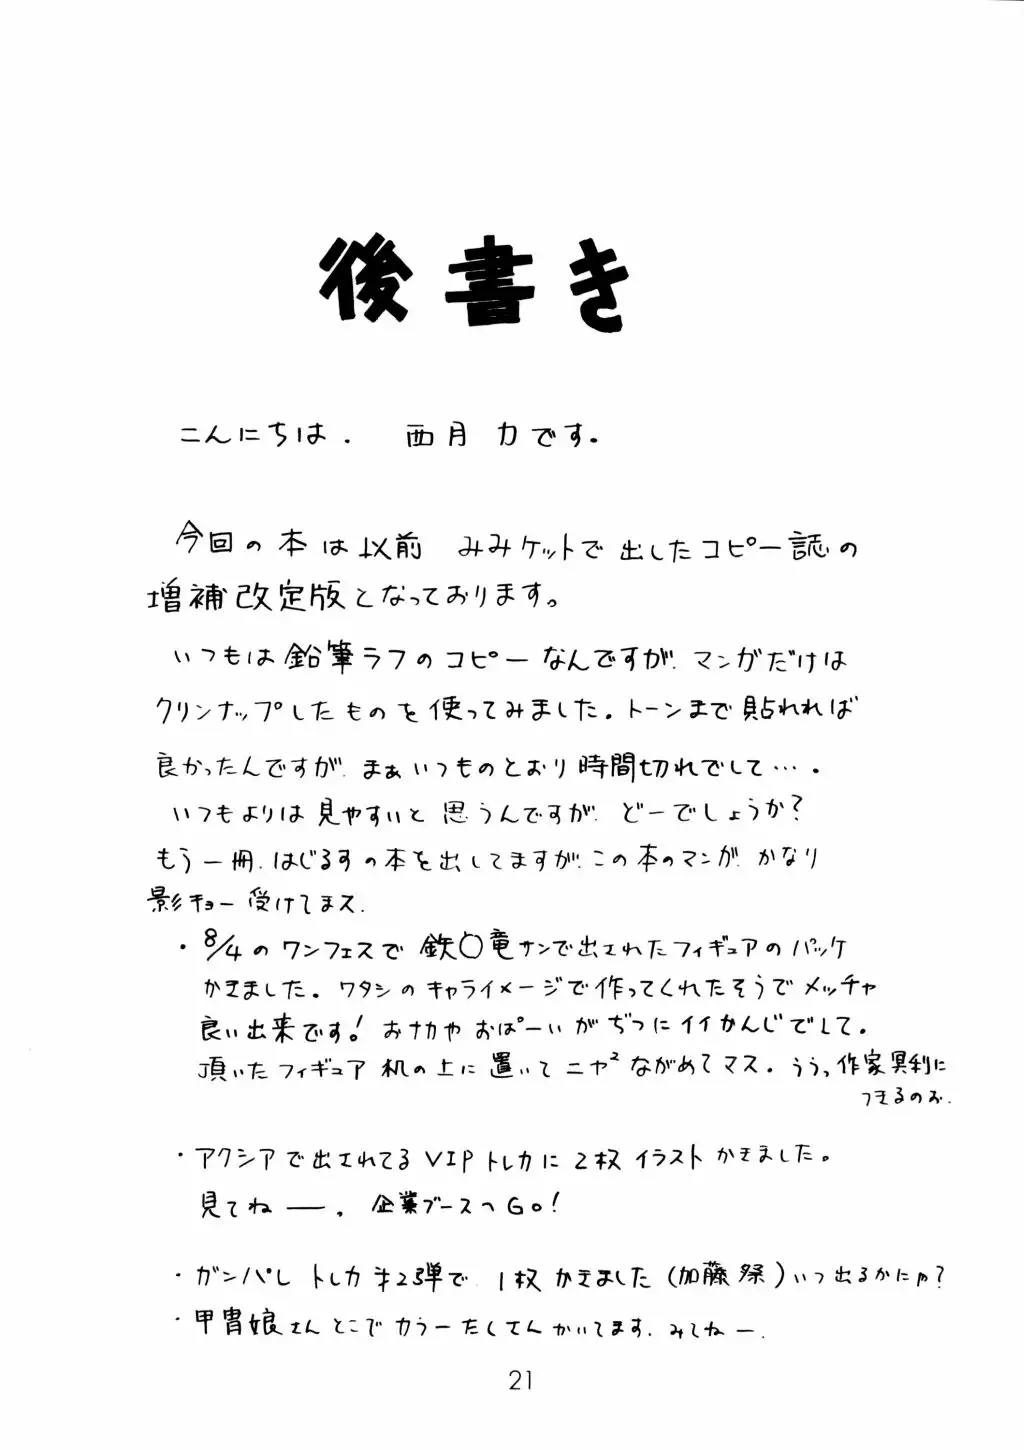 後書き
こんにちは. 西月 力です。
今回の本は以前 みみケットで出したコピー誌の
増補改定版となっております。
いつもは鉛筆ラフのコピーなんですが、マンガだけは
クリンナップしたものを使ってみました。トーンまで貼れれば
良かったんですが、まぁいつものとおり時間切れでして…。
いつもよりは見やすいと思うんですが、どーでしょうか?
もう一冊、はじるすの本を出してますが、この本のマンガ、かなり
影キョー受けてマス.
・8/4のワンフェスで鉄○竜サンで出されたフィギュアのパッケ
かきました。ワタシのキャライメージで作ってくれたそうでメッチャ
良い出来です! おナカや おぱーいがぢつにイイかんじでして。
頂いたフィギュア 机の上に置いてニヤ²ながめてマス。ううっ作家冥利に
つきるのお.
・アクシアで出されてるVIPトレカに2枚イラストかきました。
見てねー。企業ブースへGo!
・ガンパレトレカ#2弾で、1枚かきました(加藤祭)いつ出るかにゅ?
・甲冑娘さんとこでカラーたくさんかいてます、みてねー.
21